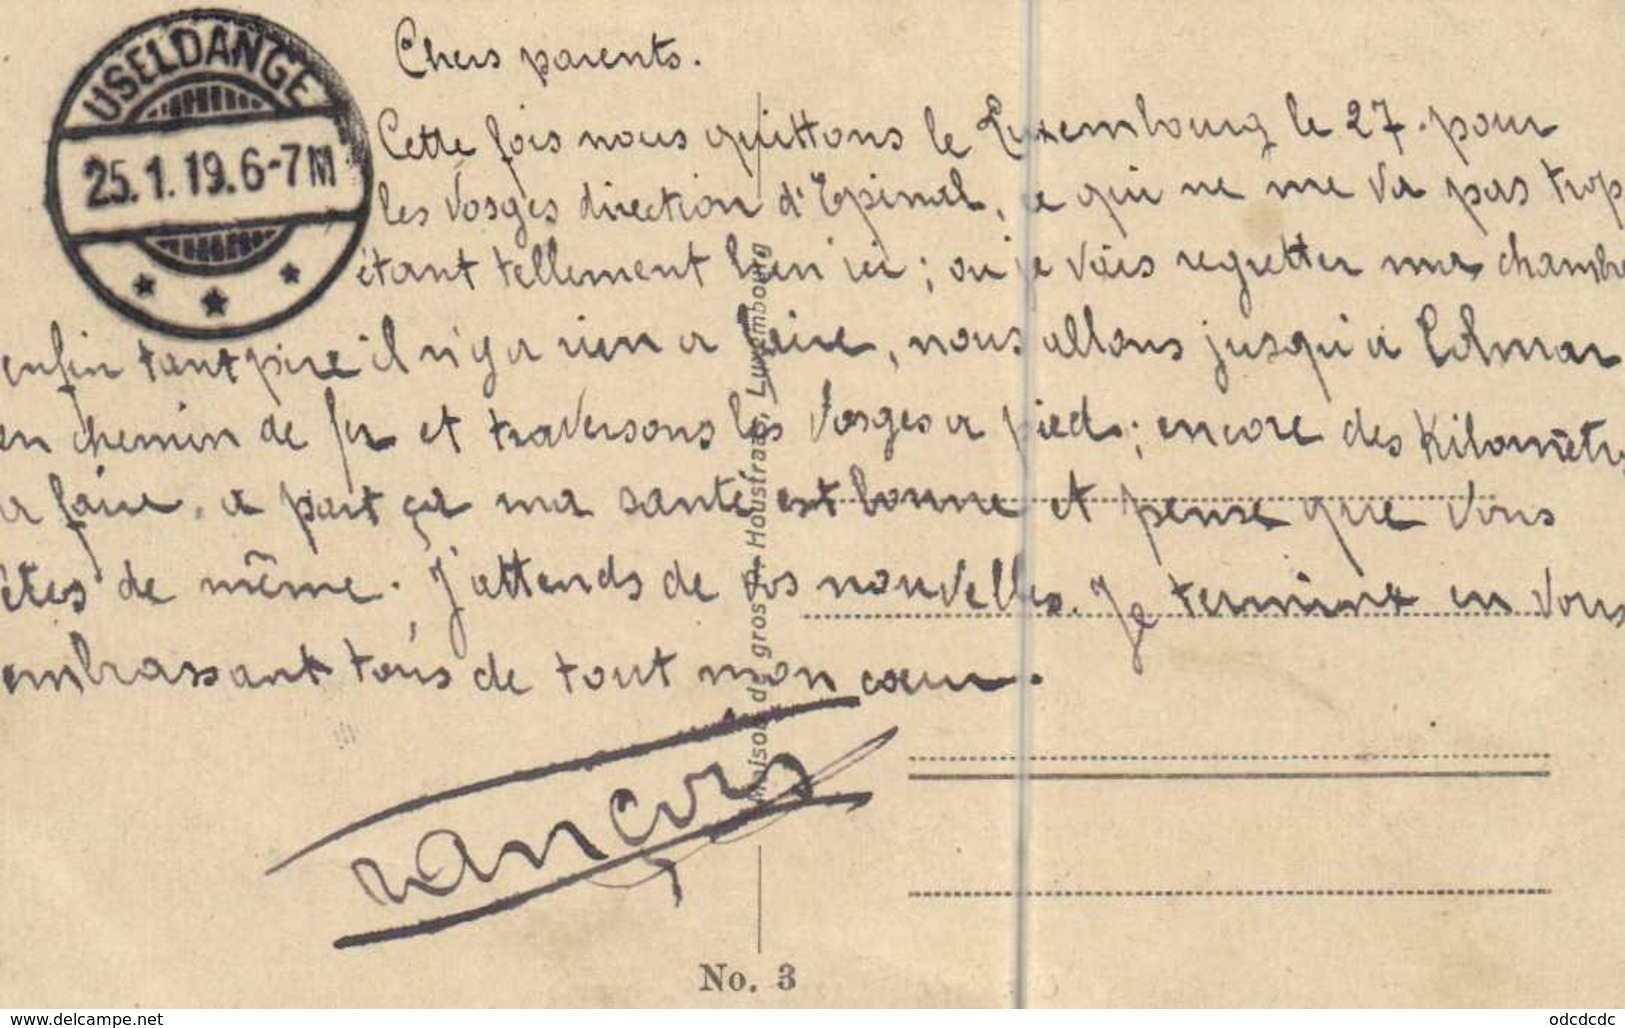 USELDANGE
25.1.19.6-7M
Chers parents.
Cette fois nous quittons le Luxembourg le 27. pour
les Vosges direction d'Epinal, ce qui ne me va pas trop
étant tellement bien ici ; ou je vais regretter ma chambre
enfin tant pire il n'y a rien a faire, nous allons jusqu'a Colmar
en chemin de fer et traversons les Vosges a pied ; encore des Kilomètr
a faire, a part ça ma santé est bonne et pense que vous
êtes de même. J'attends de vos nouvelles. Je termine en vous
embrassant tous de tout mon cœur.
Maison de gros P. Houstraas, Luxembourg
No. 3
www.delcampe.net
odcdcdc